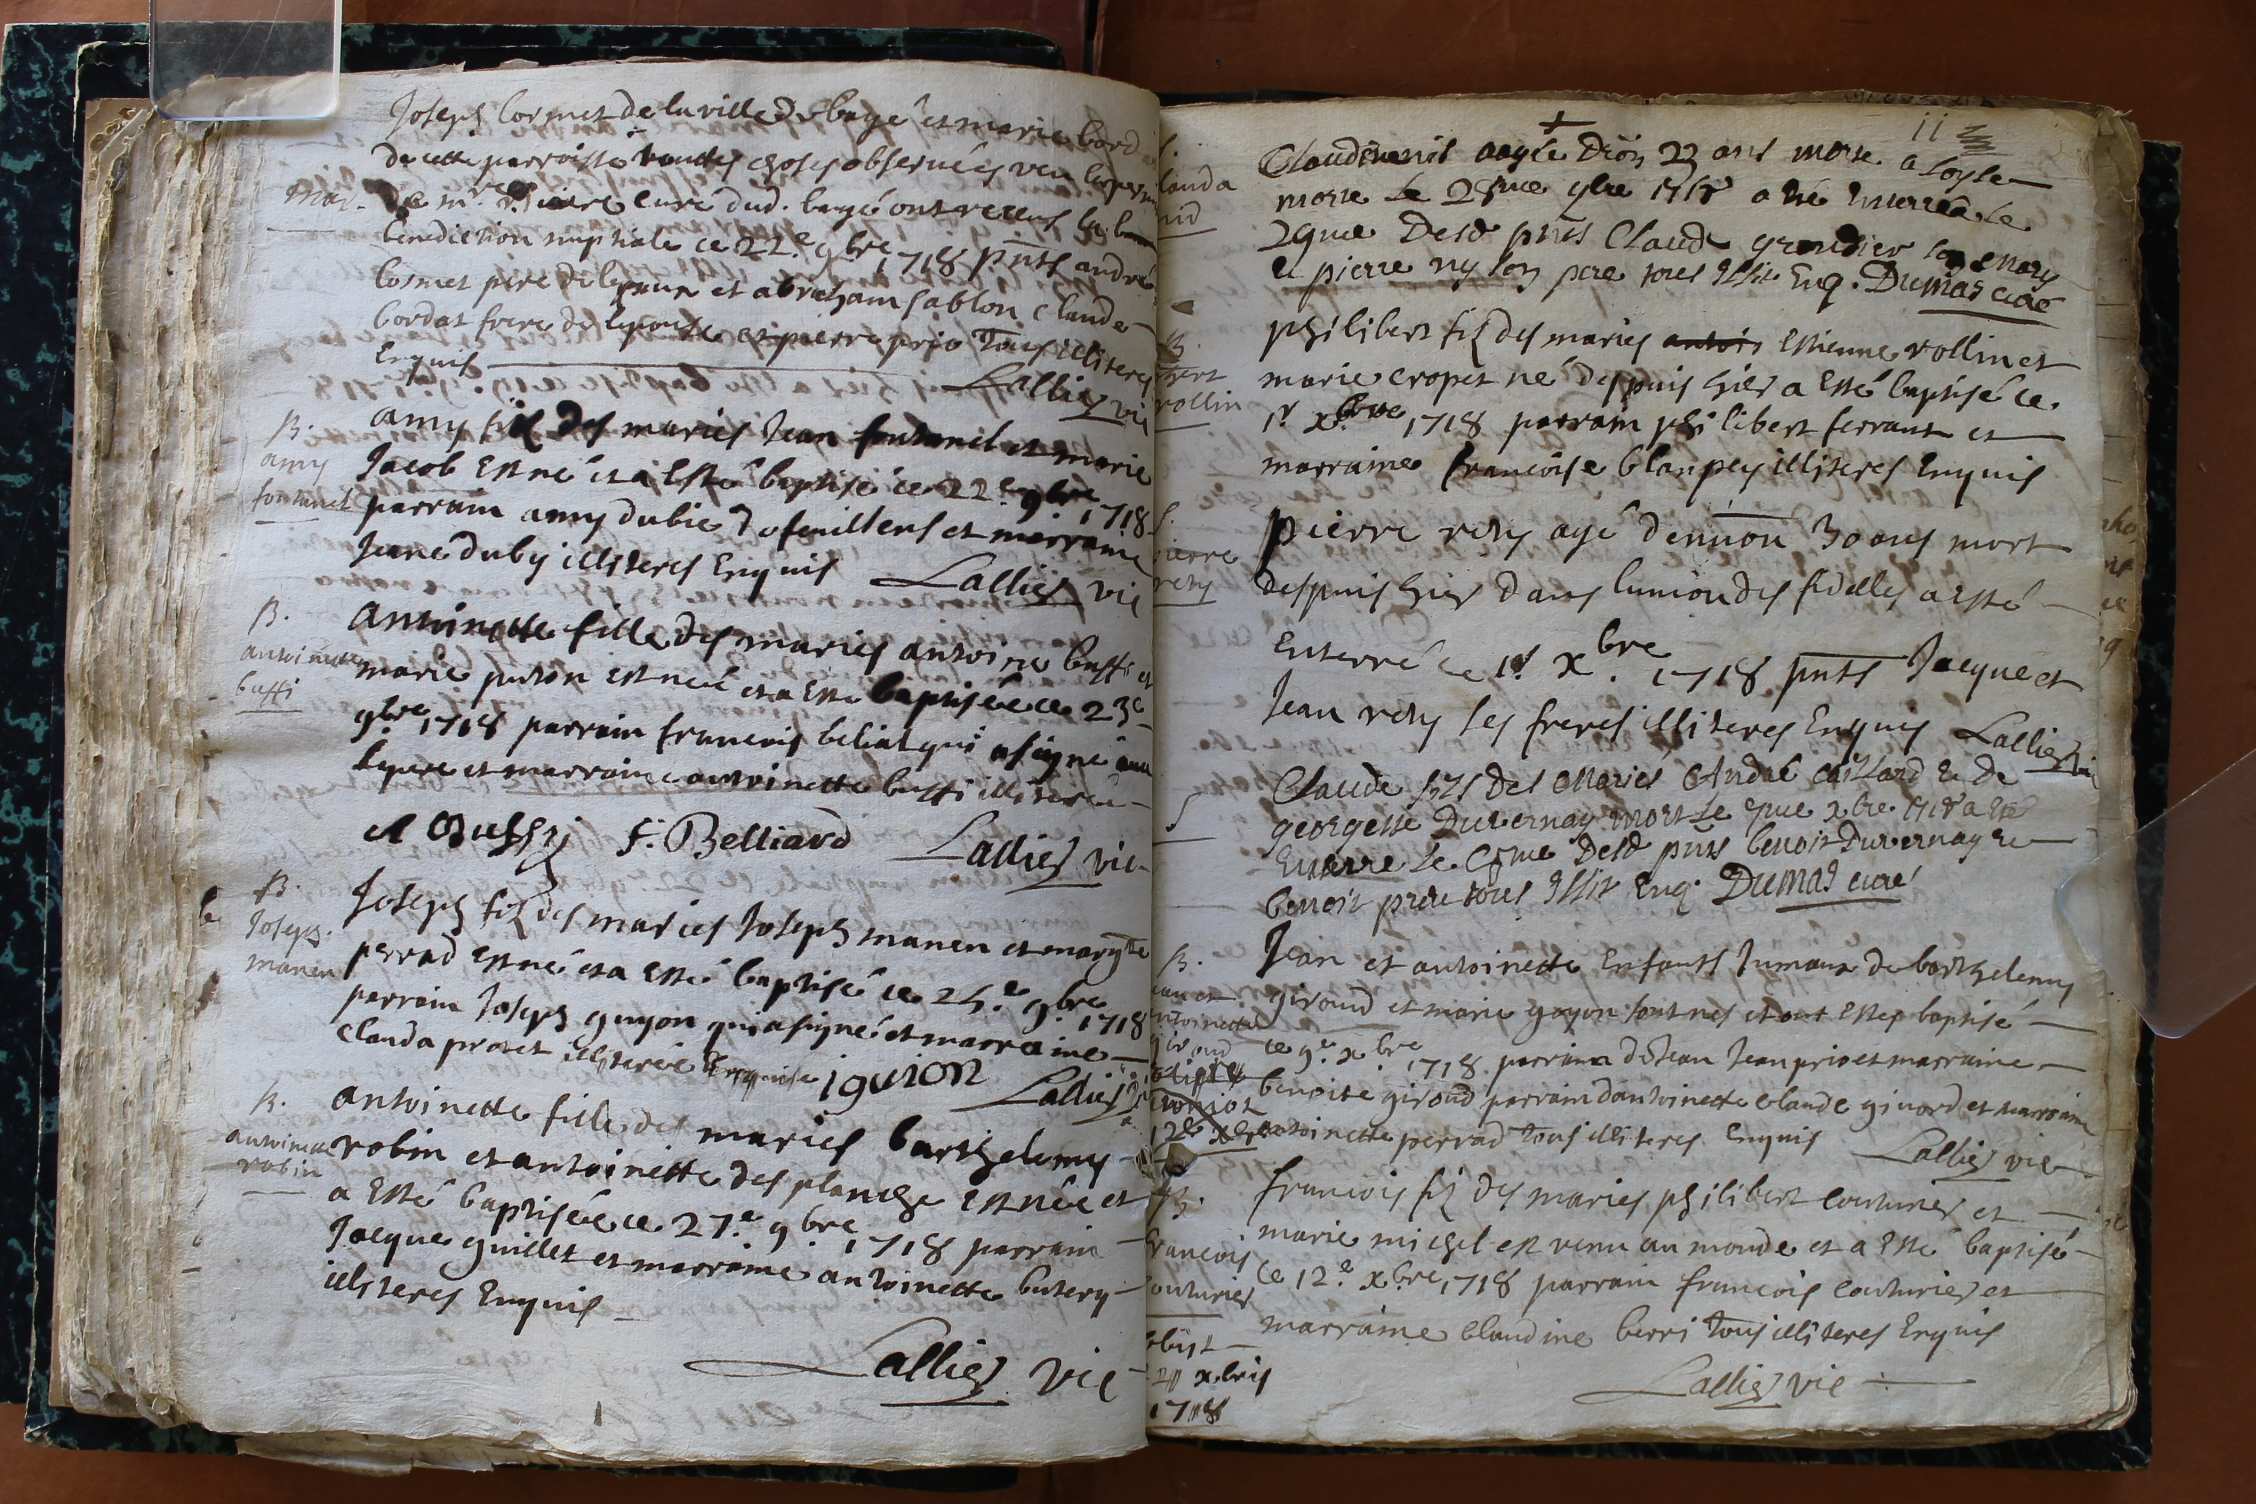 Joseph Cormet de la ville de bagé et marie bord
de cette parroisse touttes choses observées veu
Mar.
De mr. curé dud. bagé ont receus la
benediction nuptiale ce 22.e 9bre 1718 pnts andré
Cormet pere de lepoux et abraham sablon claude
bordat frere de lepouse et pierre prio tous illiteres
Enquis Lallier vic
B.
amy
fontanel
amy fiz des mariés Jean fontanel et marie
Jacob Est né et a Esté baptisé ce 22.e 9bre 1718
parrain amy dubie d ofeuillens et marraine
Jeane duby illiteres Enquis Lallier vic
B.
antoinette
buffi
antoinette fille des mariés antoine buffi et
marie puton est neé et a Este baptiseé ce 23e
9bre 1718 parrain francois beliat qui a signé avec
le pere et marraine antoinette buffi illitereé
A Buffy f. Belliard Lallier vic
B.
Joseph
manen
Joseph fiz des mariés Joseph manen et margte
perrad est né et a Esté baptisé ce 25.e 9bre 1718
parrain Joseph guyon qui a signé et marraine
Clauda protet illitereé Enquise iguion Lallier
B.
antoinette
robin
antoinette fille des mariés barthelemy
robin et antoinette des planche est neé et
a Esté baptiseé ce 27.e 9bre 1718 parrain
Jacque guillet et marraine antoinette butery
illiteres Enquis
Lallier vic
11
Claudine nis aagée 23 ans morte a loyse
morte le 28me 9bre 1718 a été Enterrée le
29me Desd pnts Claude grandier son mary
et pierre ny son pere tous Illit Enq. Dumas curé
rollin
philibert fiz des mariés antoi Estienne rollin et
marie cropet né despuis hier a Esté baptisé ce
1r xbre 1718 parrain philibert ferrant et
marraine francoise blanpey illiteres Enquis
S.
pierre
rety
pierre rety agé denuion 30 ans mort
despuis hier dans lunion des fidelles a Esté
Enterré ce 1r xbre 1718 pnts Jacque et
Jean rety ses freres illiteres Enquis Lallier vi
S
Claude fils Des Mariés André caillard & De
georgette Duvernay mort Le xbre 1718 a été
Enterre Le Desd pnts benoit Duvernay &
benoit tous Illit Enq. Dumas curé
B.
Jean et
antoinette
giroud
Jean et antoinette Enfants Jumaux de barthelemy
giroud et marie goyon sont nes et ont Estes baptisé
ce 9.e xbre 1718 parrain de Jean Jean prio et marraine
benoite giroud parrain dantoinette claude girord et marraine
antoinette perrad tous illiteres Enquis Lallier vic
B.
francois
couturier
obiit
xbris
1718
francois fiz des mariés philibert couturier et
marie michel est venu au monde et a Esté baptisé
ce 12.e xbre 1718 parrain francois couturier et
marraine Claudine berri tous illiteres Enquis
Lallier vic